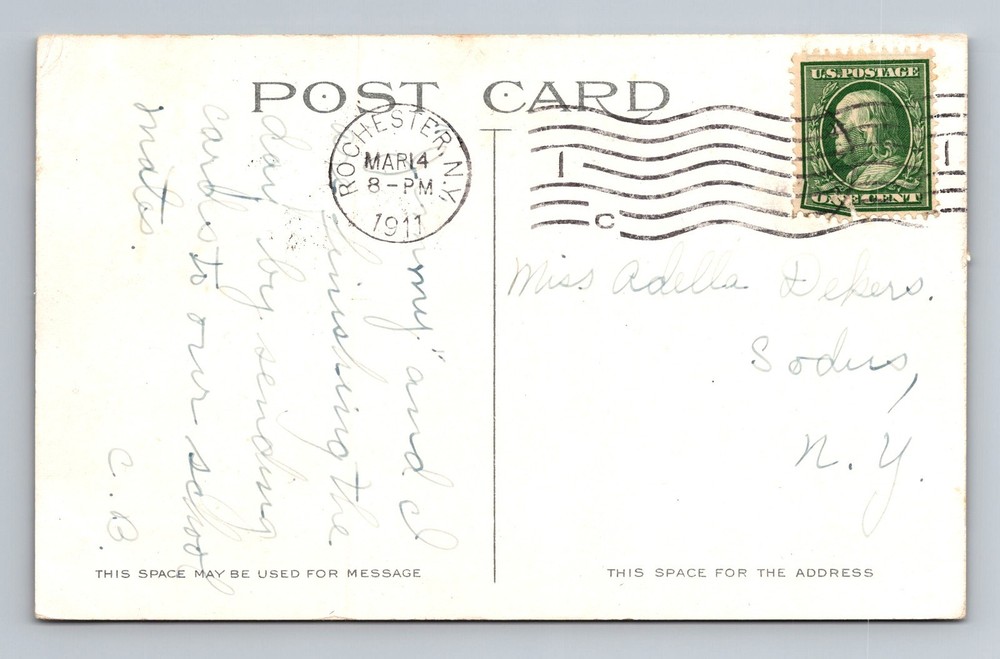 POST CARD
U.S. POSTAGE
ONE CENT
ROCHESTER, N.Y.
MAR 14
8 - PM
1911
1
C
1
"my" and I
finishing the
day by sending
cards to our school
mates.
C. B.
Miss Adella Dekers.
Sodus,
N. Y.
THIS SPACE MAY BE USED FOR MESSAGE
THIS SPACE FOR THE ADDRESS